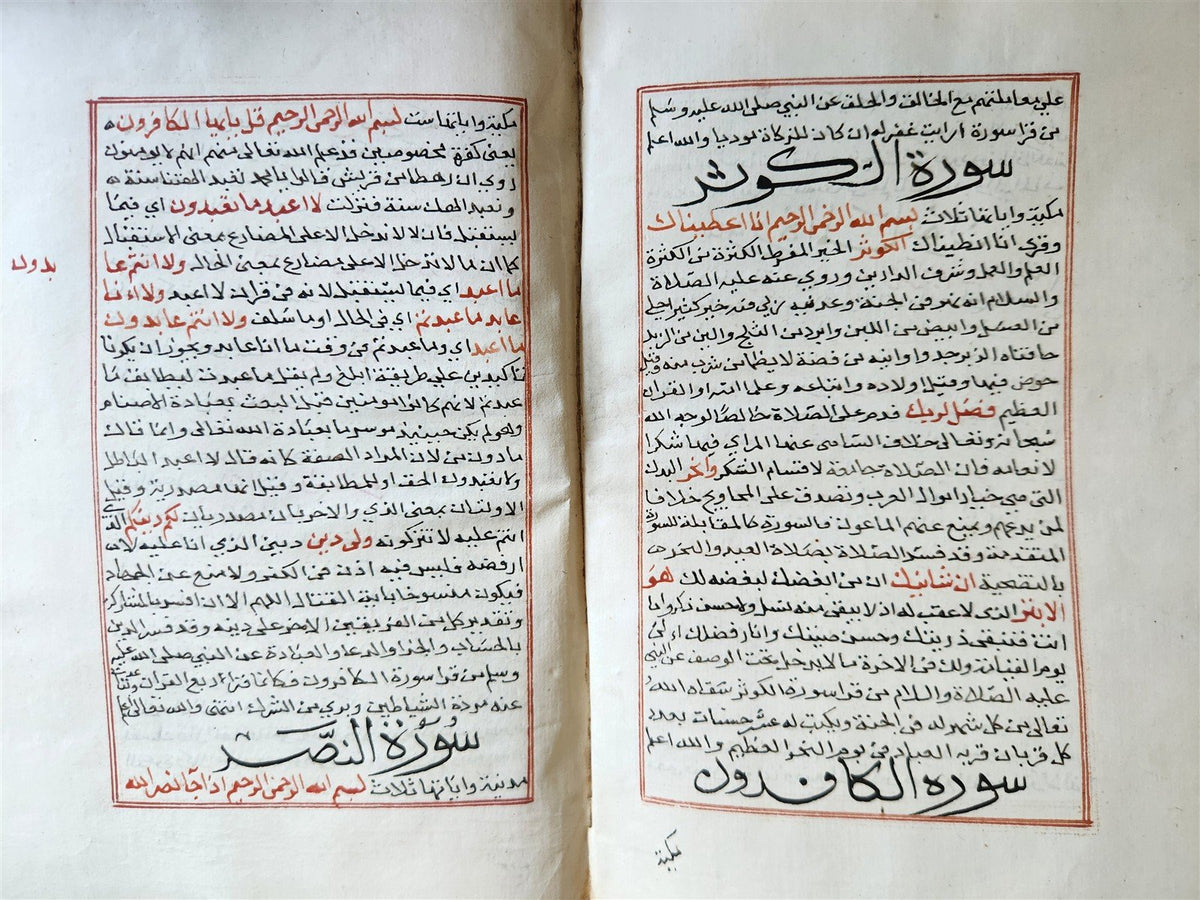 على معاملتهم مع الخالق والخلق عن النبي صلى الله عليه وسلم
من قرا سورة ارايت غفر له ان كان للزكاة موديا والله اعلم
سورة الكوثر
مكية واياتها ثلاث بسم الله الرحمن الرحيم انا اعطيناك
وقري انا انطيناك الكوثر الخير المفرط الكثرة من الكثرة
العلم والعمل وشرف الدارين وروي عنه عليه الصلاة
والسلام انه نهر في الجنة وعدنيه ربي فيه خير كثير احلى
من العسل وابيض من اللبن وابرد من الثلج والين من الزبد
حافتاه الزبرجد واوانيه من فضة لا يظما من شرب منه وقيل
حوض فيها وقيل اولاده واتباعه وعلما امته او القران
العظيم فصل لربك فدم على الصلاة خالصا لوجه الله
سبحانه وتعالى خلاف الساهى عنها المراي فيها شكرا
لانعامه فان الصلاة جامعة لاقسام الشكر وانحر البدن
التي هي خيار اموال العرب وتصدق على المحاويج خلافا
لمن يدعهم ويمنع عنهم الماعون فالسورة كالمقابلة للسورة
المتقدمة وقد فسر الصلاة بصلاة العيد والنحر
بالتضحية ان شانئك ان من ابغضك لبغضه لك هو
الابتر الذى لا عقب له اذ لا يبقى منه نسل ولا حسن ذكر واما
انت فتبقى ذريتك وحسن صيتك واثار فضلك الى
يوم القيامة ولك فى الاخرة ما لا يدخل تحت الوصف عن النبي
عليه الصلاة والسلام من قرا سورة الكوثر سقاه الله
تعالى من كل نهر له فى الجنة ويكتب له عشر حسنات بعدد
كل قربان قربه العباد في يوم النحر العظيم والله اعلم
سورة الكافرون
مكية
مكية واياتها ست بسم الله الرحمن الرحيم قل يا ايها الكافرون
يعنى كفرة مخصوصين قد علم الله تعالى منهم انهم لا يومنون
روي ان رهطا من قريش قالوا يا محمد تعبد الهتنا سنة
ونعبد الهك سنة فنزلت لا اعبد ما تعبدون اي فيما
يستقبل فان لا لا تدخل الا على المضارع بمعنى الاستقبال
كما ان ما لا تدخل الا على مضارع بمعنى الحال ولا انتم عا
بدون
ما اعبد اي فيما يستقبل لانه في قران لا اعبد ولا انا
عابد ما عبدتم اي في الحال او ما سلف ولا انتم عابدون
ما اعبد اي وما عبدتم في وقت ما انا عابد ويجوز ان يكونا
تاكيدين على طريقة ابلغ ولم يقل ما عبدت ليطابق ما
عبدتم لانهم كانوا مومنين قبل البعث بعبادة الاصنام
وهو لم يكن حينيذ موسوما بعبادة الله تعالى وانما قال
ما دون من لان المراد الصفة كانه قال لا اعبد الباطل
ولا تعبدون الحق او للمطابقة وقيل انها مصدرية وقيل
الاوليان بمعنى الذي والاخريان مصدريان لكم دينكم الذي
انتم عليه لا تتركونه ولى دين ديني الذي انا عليه لا
ارفضه فليس فيه اذن في الكفر ولا منع عن الجهاد
فيكون منسوخا باية القتال اللهم الا اذا فسر بالمتاركة
وتقدير كل من الفريقين الاخر على دينه وقد فسر الدين
بالحساب والجزا والدعا والعبادة عن النبي صلى الله عليه
وسلم من قرا سورة الكافرون فكانما قرا ربع القران وتباعدت
عنه مردة الشياطين وبري من الشرك انتهى والله تعالى اعلم
سورة النصر
مدنية واياتها ثلاث بسم الله الرحمن الرحيم اذا جا نصر الله